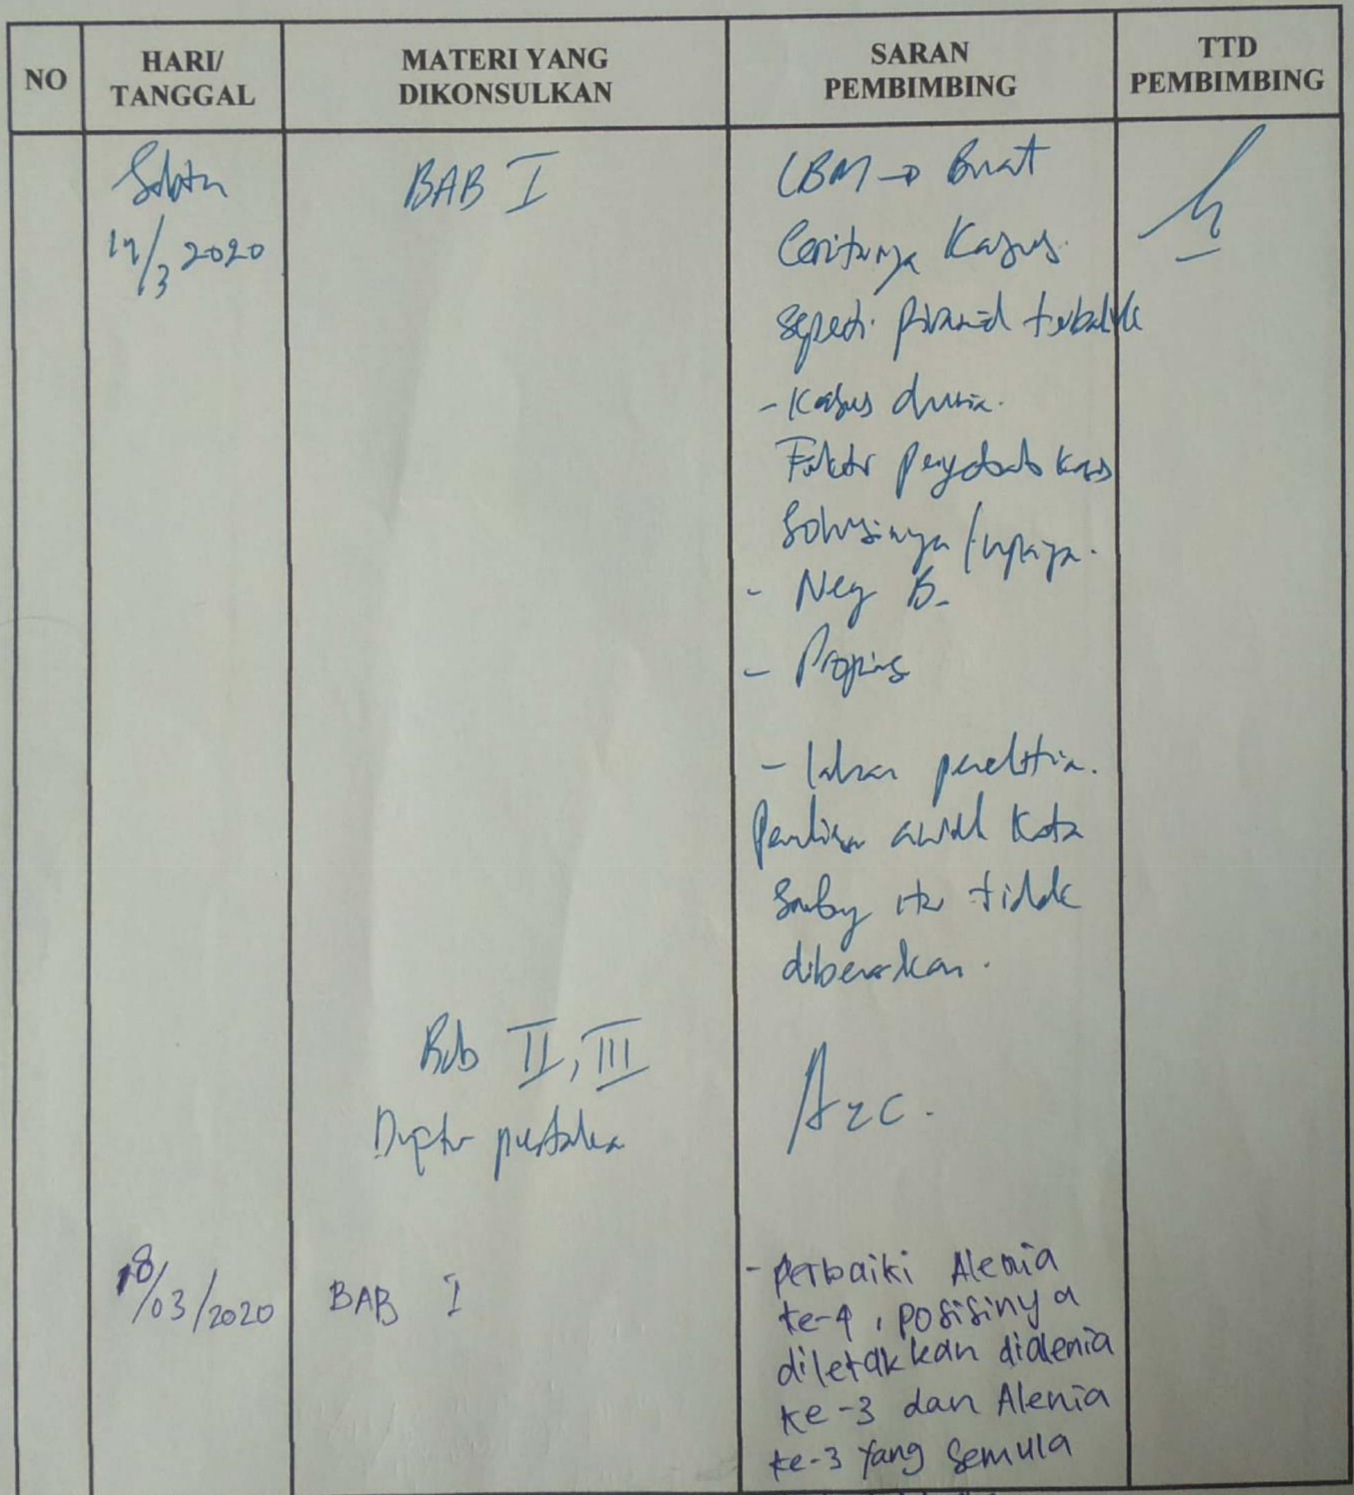 NO
HARI/
TANGGAL
MATERI YANG
DIKONSULKAN
SARAN
PEMBIMBING
TTD
PEMBIMBING
Sabtu
14/3 2020
BAB I
LBM → Buat
Ceritanya Kasus
seperti piramid terbalik
- Kasus dunia.
Faktor penyebab kasus
Solusinya / upaya.
- Neg B.
- Propins
- lahan penelitian.
Penulisan awal kata
sambung itu tidak
dibenarkan.
Bab II, III
Daptar pustaka
Acc.
18/03/2020
BAB I
- perbaiki Alenia
ke-4, posisinya
diletakkan dialenia
ke-3 dan Alenia
ke-3 yang semula